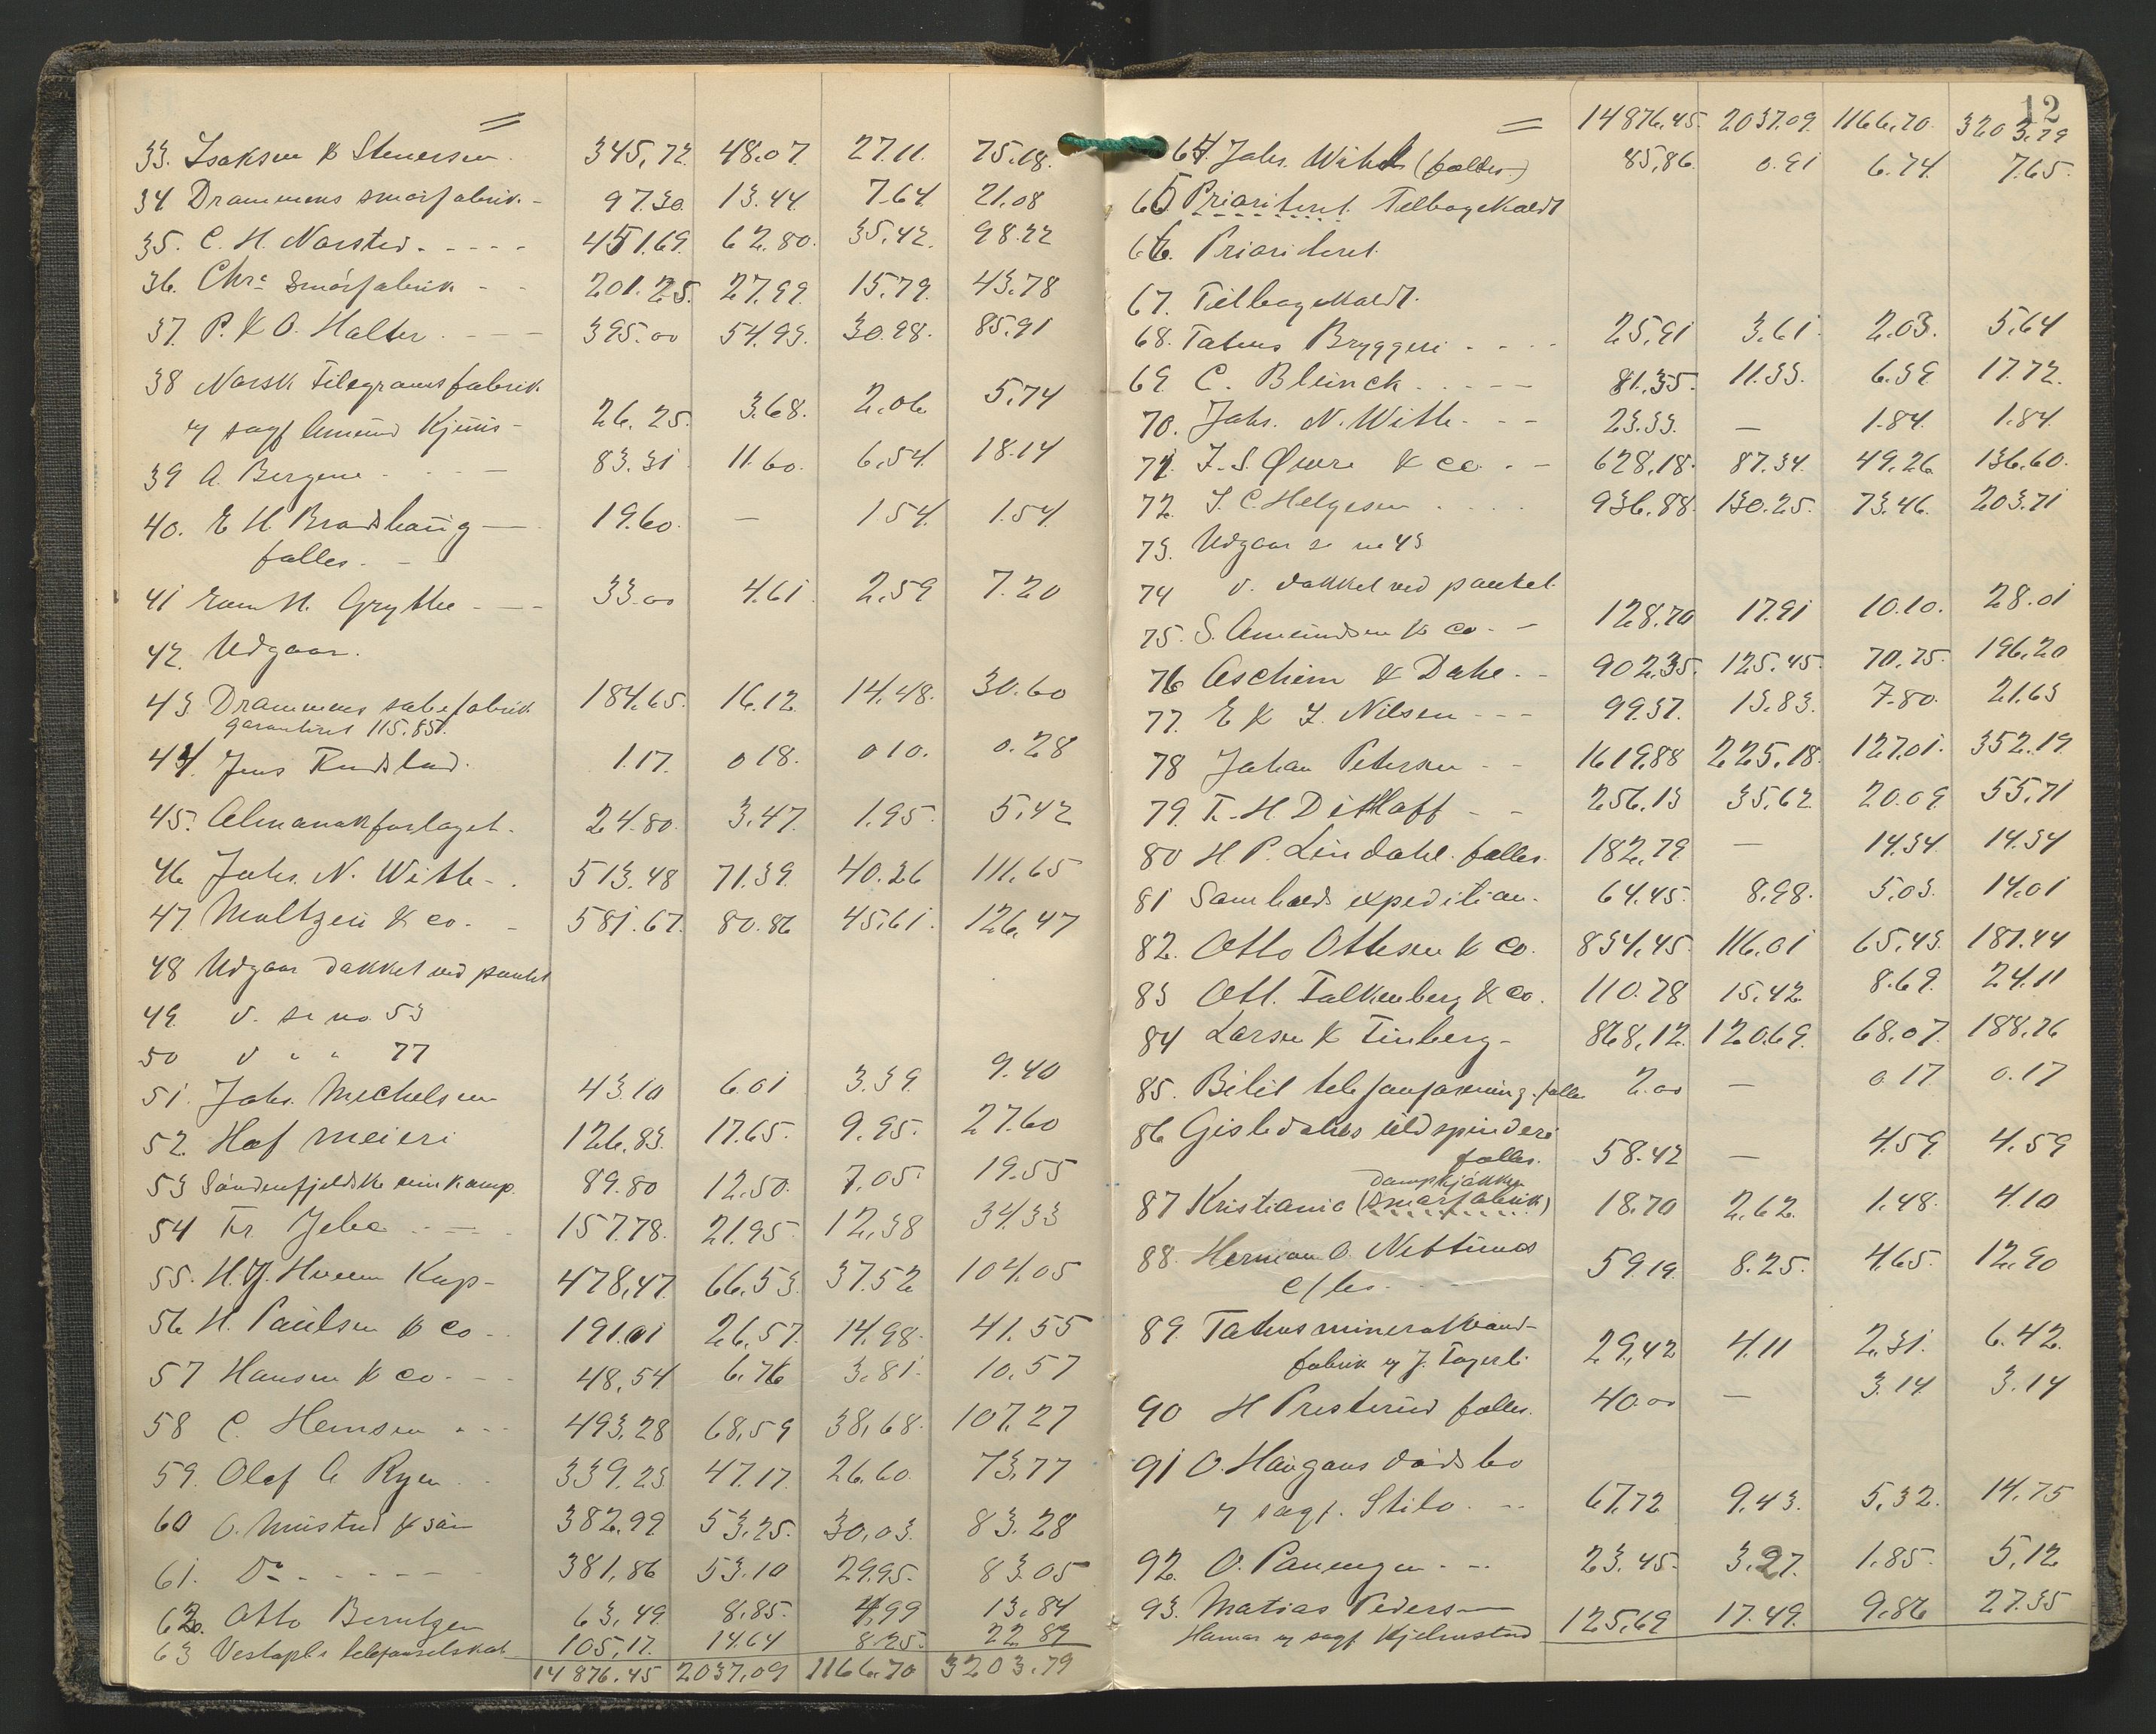 33. Isaksen & Stenersen. 345,72 48.07. 27.11. 75.18.
34 Drammens smörfabrik. - 97.30. 13.44. 7.64. 21,08
35. C. H. Narsted. - - - - 451.69. 62.80. 35,42. 98.22
36. Chr.a Smörfabrik - - 201.25. 27,99. 15,79. 43.78
37. P. & O. Halter. - - 395.00 54.93. 30.98. 85.91
38 Norsk Filegramsfabrik
v/ sagf Amund 26.25. 3.68. 2.06 5.74
39 A. Bergene - - - 83.31 11.60. 6,54. 18.14
40. E H Brandhaug - 19.60. — 1.54. 1.54.
falles. -
41 H. Grythe - - - 33.00 4.61. 2,59 7.20
42. Udgaar.
43. Drammens sæbefabrik 184.65. 16,12. 14,48. 30.60
garanteret 115.85.
44. Jens Rudstad. 1.17. 0.18. 0.10. 0.28
45. Almanakforlaget. 24.80. 3,47. 1.95. 5,42
46 Johs. N. With - . 513.48 71.39. 40.26 111,65
47. Moltzen & co. - 581.67. 80.86 45,61. 126,47
48 Udgaar dækket ved pantet
49. v. se no. 53
50 v " " 77
51. Johs. Michelsen 43.10 6.01 3.39. 9.40
52. Hof meieri 126.83. 17.65. 9.95. 27.60
53 Söndenfjeldske 89.80 12.50. 7.05. 19.55
54 Fr. Jebe - - - 157.78. 21.95. 12,38 34.33
55. H. J. Kap- 478,47. 66,53. 37.52 104.05
56 H. Paulsen & Co - 191.01 26,57. 14,98. 41.55
57 Hansen & co. - - 48,54. 6.76 3,81. 10,57
58 C. Hemsen - - - 493,28 68,59 38,68. 107,27
59. Olaf A Ryen - 339,23. 47.17. 26.60. 73,77
60 O. Mustad & sön 382,99. 53.25. 30,03. 83.28
61. Do - - - - - - 381,86 53.10 29.95. 83.05
62. Otto Berntzen 63,49. 8.85. 4,99 13,84
63 Vestopl. telefonselskab 105,17. 14.64 8.25. 22.89
14876.45 2037,09 1166.70 3203.79
12
14876,45. 2037.09. 1166,70. 3203,79
64. Johs. With (falles) 85,86. 0.91 6.74. 7.65.
65 Prioriteret. Tilbagekaldt
66. Prioriteret.
67. Tilbagekaldt.
68. Totens Bryggeri - - - - 25,91 3,61. 2.03. 5,64
69. C. Blunck - - - - - 81.35. 11.33. 6.39. 17.72.
70. Johs. N. With - - - 23.33. — 1.84. 1.84.
71. & co. - - 628,18. 87.34. 49,26 136,60.
72. I. C. Helgesen - - - - 936,88. 130.25. 73.46. 203.71
73. Udgaar se no 43
74 v. dækket ved pantet.
75. S. Amundsen & Co - - 128.70 17.91 10.10. 28.01
76 Aschim & Dahe. - 902,35. 125.45. 70.75. 196,20
77. E & I. Nilsen - - - 99.37. 13.83. 7.80. 21.63
78 Johan Petersen - - 1619,88 225.18. 127.01. 352.19
79. T. H. Ditlloff - - 256,13 35,62. 20.09 55,71
80 H. P. Lindahl. falles. 182,79. — 14.34. 14.34
81 Samlags expedition. 64.45. 8.98. 5,03. 14,01
82. Otto Ottesen & Co. 834,45. 116.01 65,43. 181.44
83 Ott. Falkenberg & Co. 110.78 15,42. 8.69. 24.11
84 Larsen & Finberg - 868,12. 120.69. 68.07. 188.76
85. falles 2.00 — 0.17 0.17
86 uldspinderi
falles. 58.42 — 4.59. 4.59
dampkjökken
87 Kristiania (smörfabrik) 18.70 2,62. 1.48. 4.10
88. Herman O.
eftes. - 59.19. 8.25. 4,65. 12,90
89. Totens mineralvand-
fabrik v/ J. Fagerli 29,42 4.11 2,31. 6.42.
90 H Presterud falles. 40.00 — 3.14. 3.14
91 O. Haugans dödsbo
v/ sagf. Stilo. - - 67,72 9,43. 5,32. 14,75
92. O. - - 23.45. 3.27. 1.85. 5,12
93. Matias Pedersen 125,69 17.49. 9,86 27.35
Hamar v/ sagf Kjelmstad